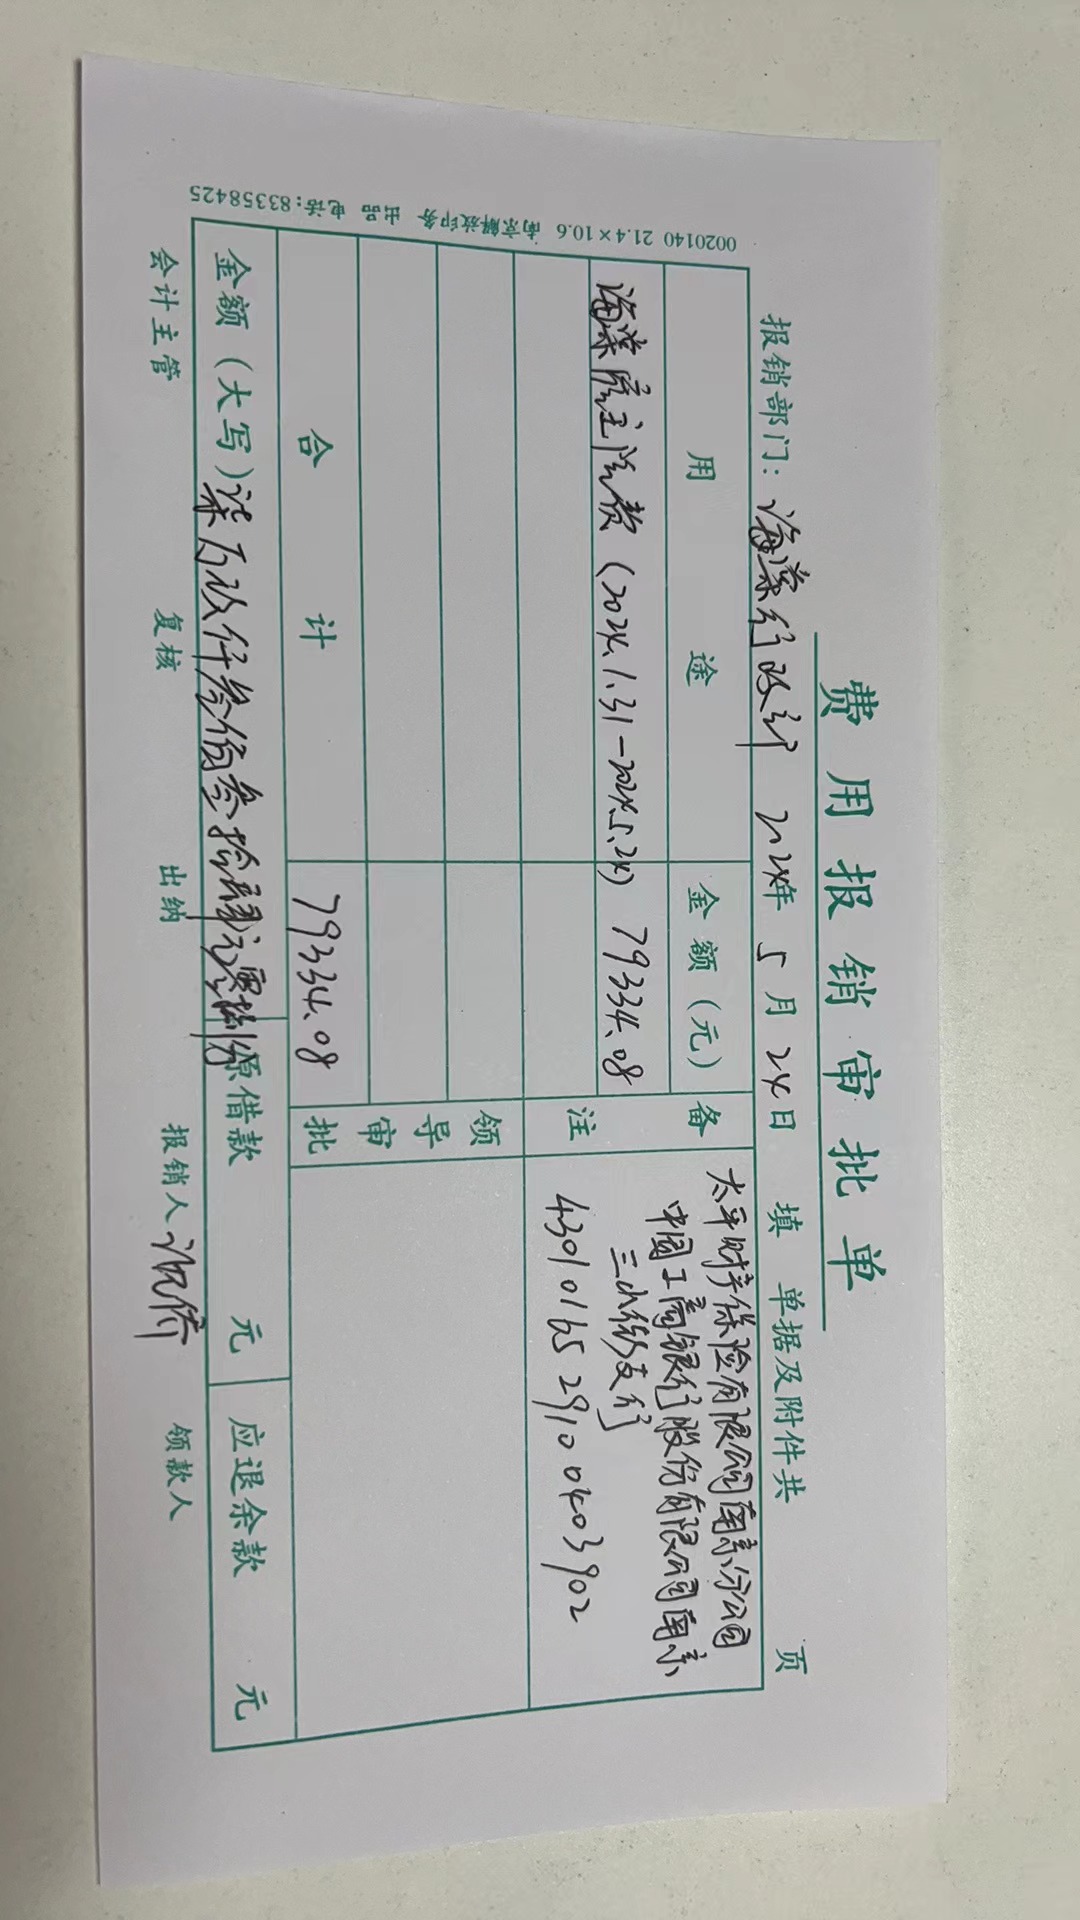 费用报销审批单
报销部门：海棠行政部 2024年 5月 24日 填 单据及附件共 页
用 途 金额(元) 备注
海棠房主住费(2024.1.31-2024.5.24) 79334.08
太平财产保险有限公司南京分公司
中国工商银行股份有限公司南京
三山街支行
4301016529100403902
合 计 79334.08
领导审批
金额(大写)柒万玖仟叁佰叁拾肆元零捌分 原借款 元 应退余款 元
会计主管 复核 出纳 报销人 领款人
0020140 21.4×10.6 南京解放印务 出品 电话:83358425